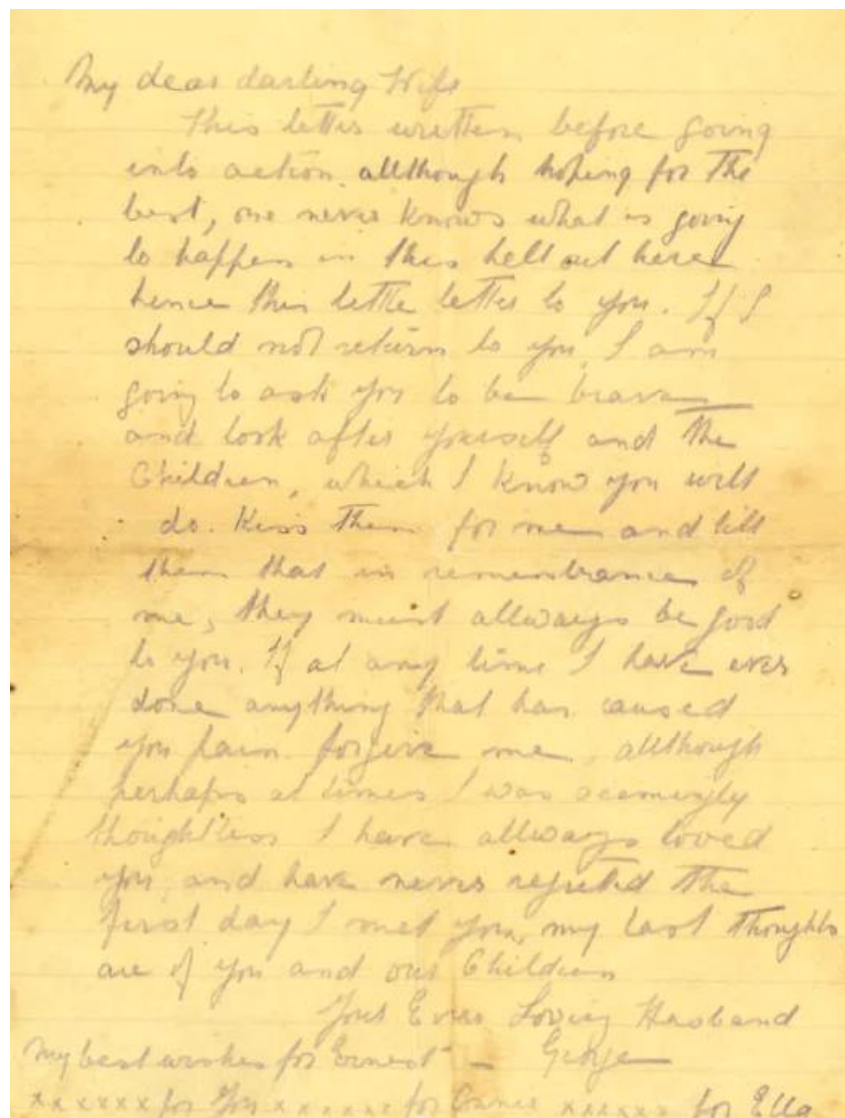 My dear darling Wife
This letter written before going
into action. allthough hoping for the
best, one never knows what is going
to happen in this hell out here
hence this little letter to you. If I
should not return to you, I am
going to ask you to be brave
and look after yourself and the
Children, which I know you will
do. Kiss them for me and tell
them that in remembrance of
me, they must allways be good
to you. If at any time I have ever
done anything that has caused
you pain forgive me, allthough
perhaps at times I was seemingly
thoughtless I have allways loved
you, and have never regreted the
first day I met you, my last thoughts
are of you and our Children
Your Ever Loving Husband
My best wishes for Ernest - George
xxxxxx for You xxxxxx for Connie xxxxxx for Ella